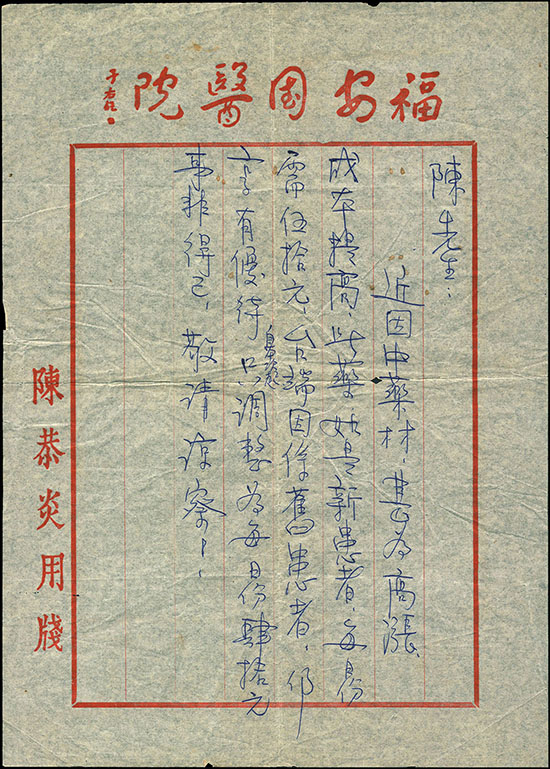 福安国醫院
于右任
陳先生：
近因中藥材、甚為高漲、
成本提高、此藥如是新患者、每份
需伍拾元、台端因係舊患者、仍
享有優待只調整為每日份肆拾元
事非得已、敬請諒察！
陳恭炎用牋